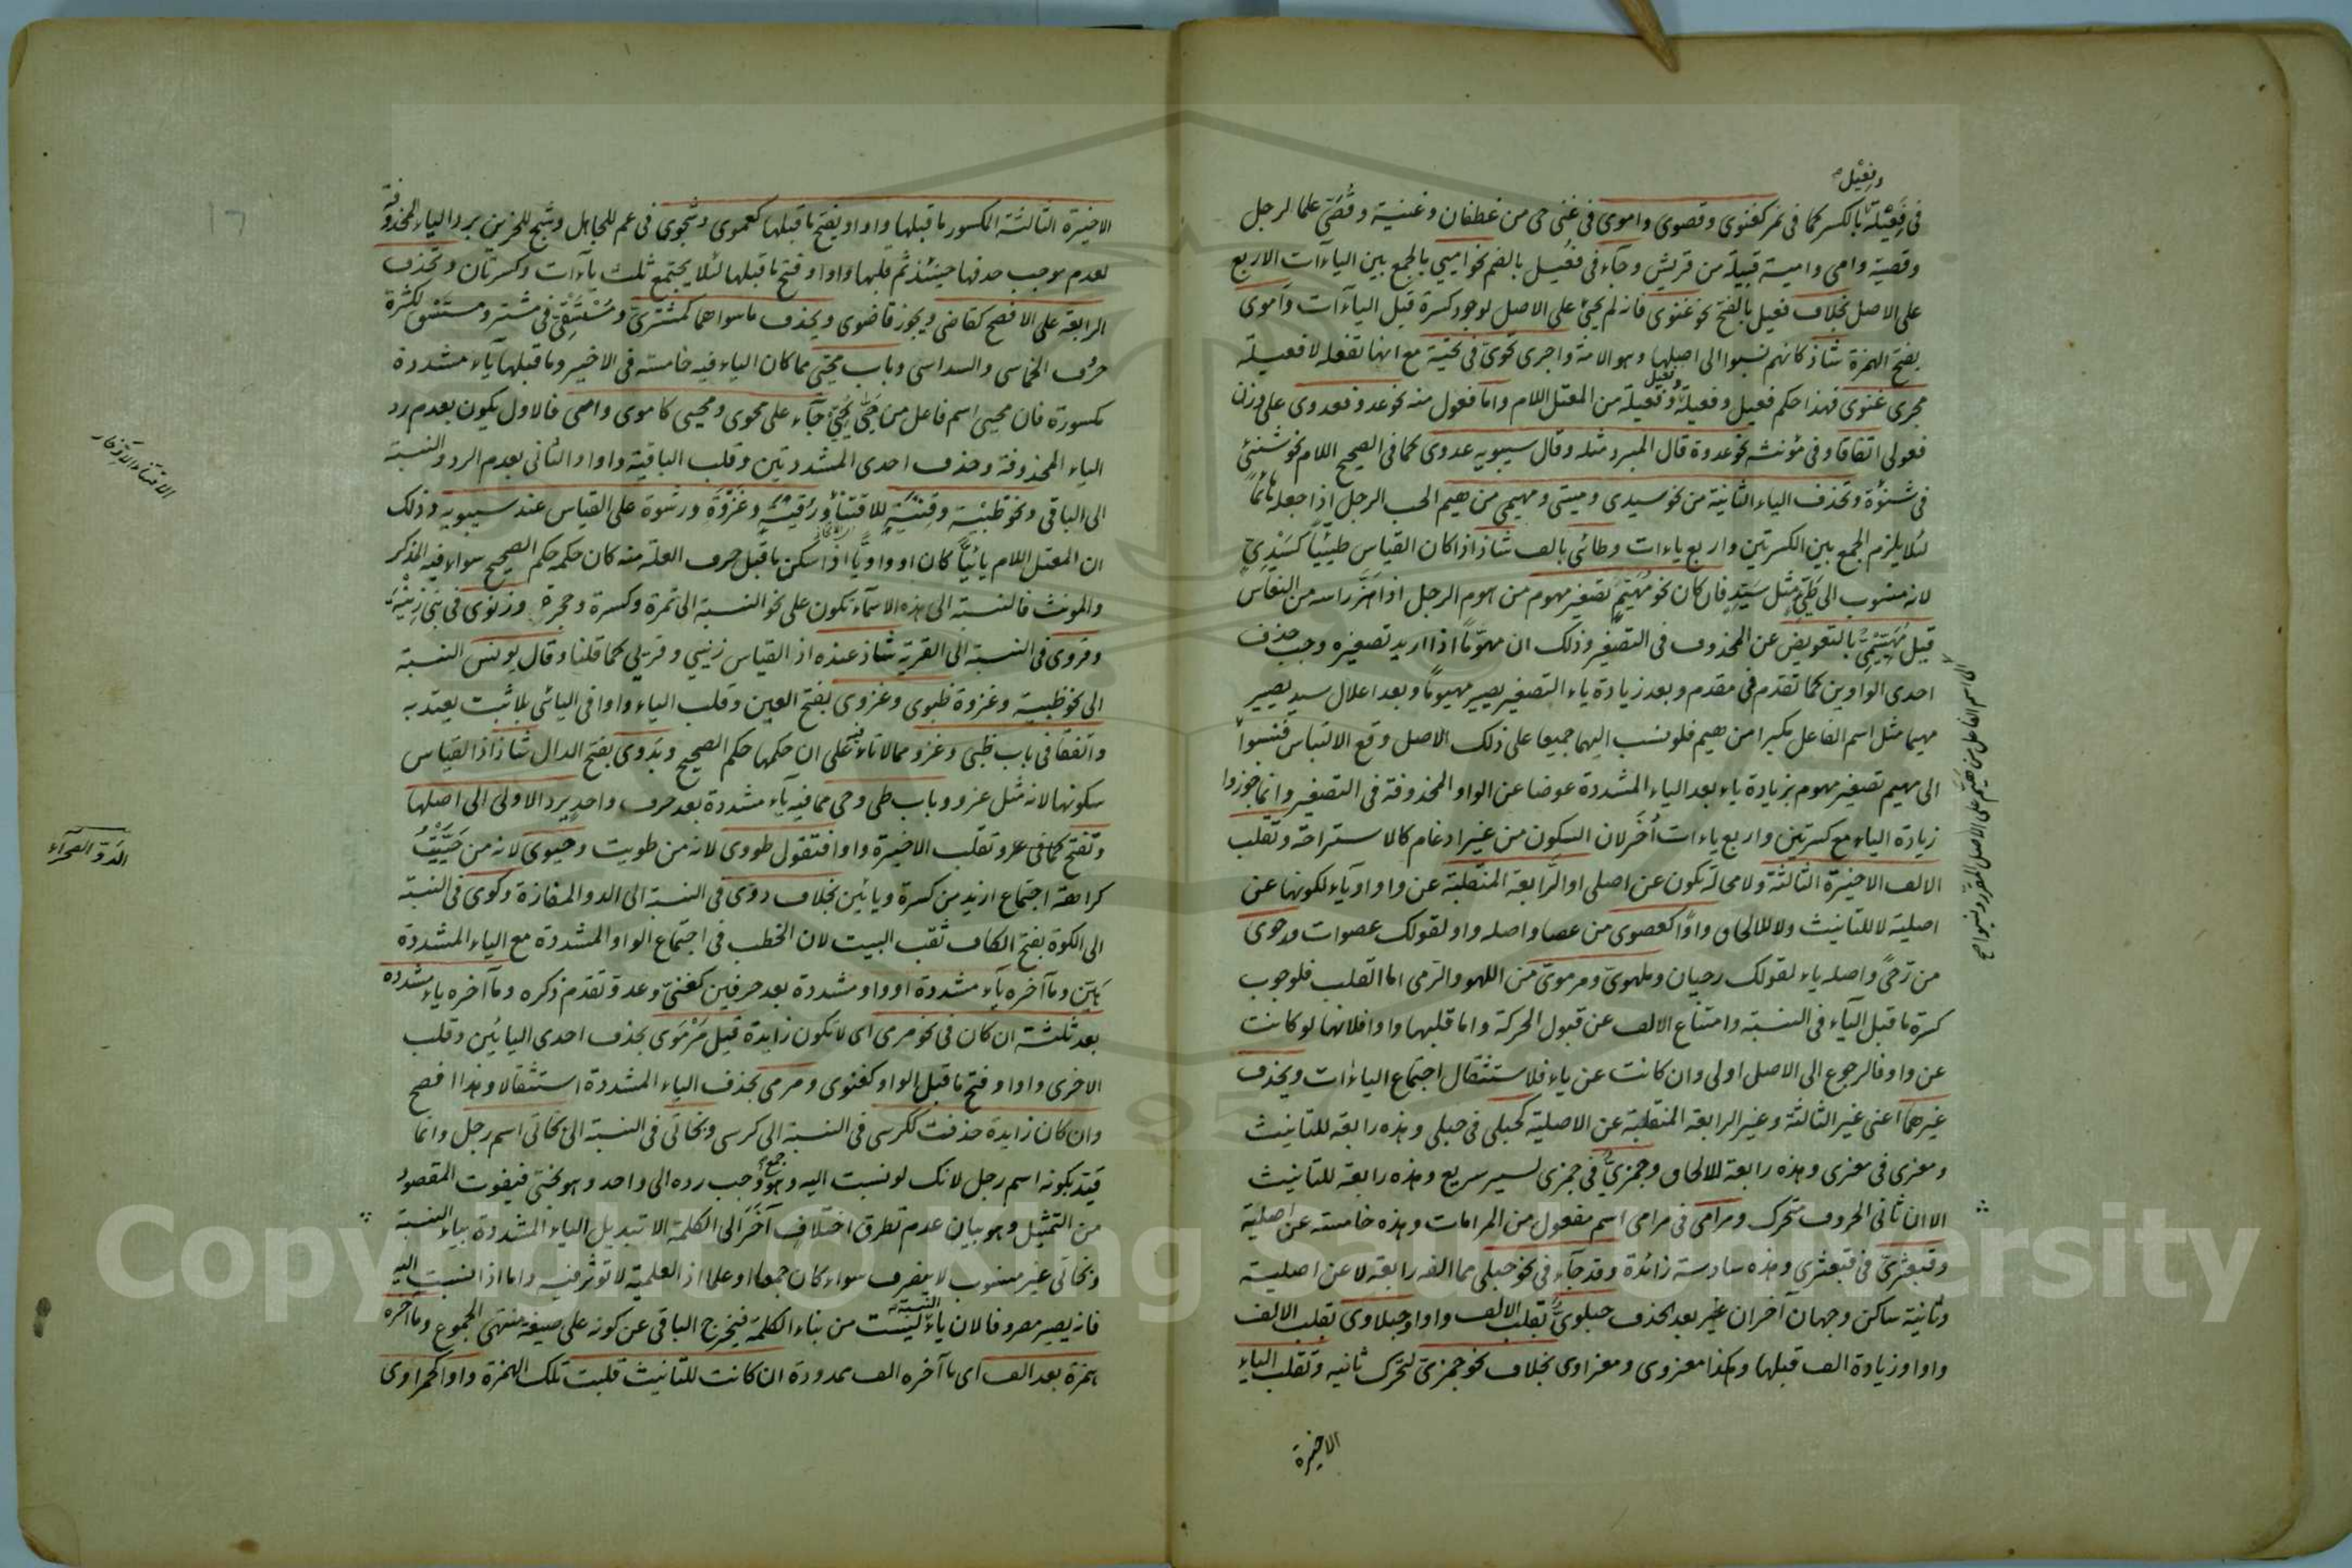 وفعيل
فى فعيلة بالكسر كما فى نمر كغنوى وقصوى واموى فى غنى حى من غطفان وغنية وقصى علما لرجل
وقصية وامى وامية قبيلة من قريش وجآء فى فعيل بالضم نحو اميى بالجمع بين اليآءات الاربع
على الاصل بخلاف فعيل بالفتح نحو غنوى فانه لم يجئ على الاصل لوجود كسرة قبل اليآءات وأموى
بفتح الهمزة شاذ كانهم نسبوا الى اصلها وهو الامة واجرى تحوى فى تحية مع انها تفعلة لا فعيلة
مجرى غنوى فهذا حكم فعيل وفعيلة وفعيل وفعيلة من المعتل اللام واما فعول منه نحو عدو فعدوى على وزن
فعولى اتفاقا وفى مؤنثه نحو عدوة قال المبرد مثله وقال سيبويه عدوى كما فى الصحيح اللام نحو شنئى
فى شنؤة وتحذف الياء الثانية من نحو سيدى وميتى ومهيمى من هيم الحب الرجل اذا جعله هائما
لئلا يلزم الجمع بين الكسرتين واربع ياءات وطائى بالف شاذ اذا كان القياس طيئيا كسيدى
لانه منسوب الى طيئ مثل سيد فان كان نحو مهيم تصغير مهوم من هوم الرجل اذا هز راسه من النعاس
قيل مهييمى بالتعويض عن المحذوف فى التصغير وذلك ان مهوما اذا اريد تصغيره وجب حذف
احدى الواوين كما تقدم فى مقدم وبعد زيادة ياء التصغير يصير مهيوما وبعد اعلال سيد يصير
مهيما مثل اسم الفاعل مكبرا من هيم فلو نسب اليهما جميعا على ذلك الاصل وقع الالتباس فنسبوا
الى مهيم تصغير مهوم بزيادة ياء بعد الياء المشددة عوضا عن الواو المحذوفة فى التصغير وانما جوزوا
زيادة الياء مع كسرتين واربع ياءات أخر لان السكون من غير ادغام كالاستراحة وتقلب
الالف الاخيرة الثالثة ولا محالة تكون عن اصلى او الرابعة المنقلبة عن واو او يآء لكونها عن
اصلية لا للتانيث ولا للالحاق واوا كعصوى من عصا واصله واو لقولك عصوات ورحوى
من رحى واصله ياء لقولك رحيان وملهوى ومرموى من اللهو والرمى اما القلب فلوجوب
كسرة ما قبل اليآء فى النسبة وامتناع الالف عن قبول الحركة واما قلبها واوا فلانها لو كانت
عن واو فالرجوع الى الاصل اولى وان كانت عن ياء فلاستثقال اجتماع الياءات ويحذف
غيرهما اعنى غير الثالثة وغير الرابعة المنقلبة عن الاصلية كحبلى فى حبلى وهذه رابعة للتانيث
ومعزى فى معزى وهذه رابعة للالحاق وجمزى فى جمزى لسير سريع وهذه رابعة للتانيث
الا ان ثانى الحروف متحرك ومرامى فى مرامى اسم مفعول من المرامات وهذه خامسة عن اصلية
وقبعثرى فى قبعثرى وهذه سادسة زائدة وقد جآء فى نحو حبلى مما الفه رابعة لا عن اصلية
وثانية ساكن وجهان آخران غير بعد الحذف حبلوى تقلب الالف واوا وحبلاوى تقلب الالف
واوا وزيادة الف قبلها وهكذا معزوى ومعزاوى بخلاف نحو جمزى لتحرك ثانيه وتقلب الياء
الاخيرة
الاخيرة الثالثة المكسور ما قبلها واوا ويفتح ما قبلها كعموى وشجوى فى عم للجاهل وشج للحزين برد الياء المحذوفة
لعدم موجب حذفها حينئذ ثم قلبها واوا وفتح ما قبلها لئلا يجتمع ثلث يآءات وكسرتان وتحذف
الرابعة على الافصح كقاضى ويجوز قاضوى ويحذف ما سواهما كمشترى ومستقى فى مشتر ومستسق لكثرة
حرف الخماسى والسداسى وباب محيى مما كان الياء فيه خامسة فى الاخير وما قبلها يآء مشددة
مكسورة فان محيى اسم فاعل من حيى يحيى جآء على محوى ومحيى كاموى وامى فالاول يكون بعدم رد
الياء المحذوفة وحذف احدى المشددتين وقلب الباقية واوا والثانى بعدم الرد والنسبة
الى الباقى ونحو ظبية وقنية للاقتناء ورقية وغزوة ورشوة على القياس عند سيبويه وذلك
ان المعتل اللام يائيا كان او واويا اذا سكن ما قبل حرف العلة منه كان حكمه حكم الصحيح سواء فيه المذكر
والمونث فالنسبة الى هذه الاسمآء تكون على نحو النسبة الى تمرة وكسرة وحجرة وزنوى فى بنى زنية
وقروى فى النسبة الى القرية شاذ عنده اذ القياس زنيى وقريى كما قلنا وقال يونس النسبة
الى نحو ظبية وغزوة ظبوى وغزوى بفتح العين وقلب الياء واوا فى اليائى بلا ثبت يعتد به
واتفقا فى باب ظبى وغزو مما لا تاء فيه على ان حكمها حكم الصحيح وبدوى بفتح الدال شاذ اذ القياس
سكونها لانه مثل غزو وباب طى وحى مما فيه يآء مشددة بعد حرف واحد يرد الاولى الى اصلها
وتفتح كما فى عرو وتقلب الاخيرة واوا فتقول طووى لانه من طويت وحيوى لانه من حييت
كراهة اجتماع ازيد من كسرة ويائين بخلاف دوى فى النسبة الى الدو المفازة وكوى فى النسبة
الى الكوة بفتح الكاف ثقب البيت لان الخطب فى اجتماع الواو المشددة مع الياء المشددة
هين وما آخره يآء مشددة او واو مشددة بعد حرفين كغنى وعدو تقدم ذكره وما آخره ياء مشددة
بعد ثلثة ان كان فى نحو مرمى اى لا تكون زايدة قيل مرموى بحذف احدى اليائين وقلب
الاخرى واوا وفتح ما قبل الواو كغنوى ومرمى بحذف الياء المشددة استثقالا وهذا افصح
وان كان زايدة حذفت ككرسى فى النسبة الى كرسى وبخاتى فى النسبة الى بخاتى اسم رجل وانما
قيد بكونه اسم رجل لانك لو نسبت اليه وهو جمع وجب رده الى واحد وهو بختى فيفوت المقصود
من التمثيل وهو بيان عدم تطرق اختلاف آخر الى الكلمة الا تبديل الياء المشددة بياء النسبة
وبخاتى غير منسوب لا ينصرف سواء كان جمعا او علما اذ العلمية لا تؤثر فيه واما اذا نسبت اليه
فانه يصير مصروفا لان ياء النسبة ليست من بناء الكلمة فيخرج الباقى عن كونه على صيغة منتهى الجموع وما آخره
همزة بعد الف اى ما آخره الف ممدودة ان كانت للتانيث قلبت تلك الهمزة واوا كحمراوى
الدو الصحرآء
Copyright © King Saud University